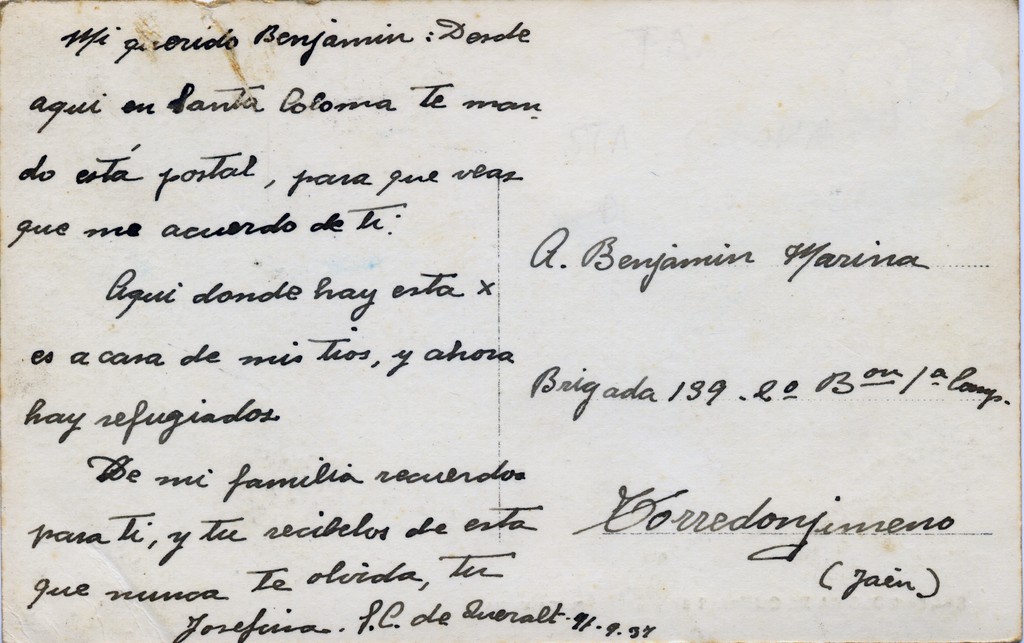 Mi querido Benjamin: Desde
aqui en Santa Coloma te man
do está postal, para que veas
que me acuerdo de ti.
Aqui donde hay esta x
es a casa de mis tios, y ahora
hay refugiados
De mi familia recuerdos
para ti, y tu recibelos de esta
que nunca te olvida, tu
Josefina. S.C. de Queralt. 9.37
A. Benjamin Marina
Brigada 139. 2º Bon 1ª Comp.
Torredonjimeno
(Jaén)